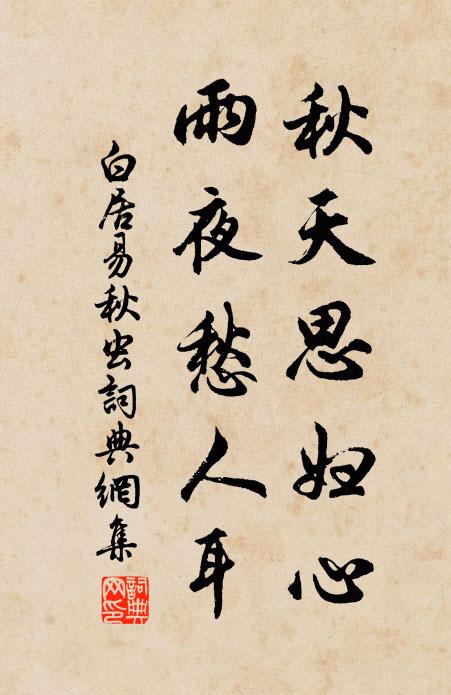 秋天思妇心
雨夜愁人耳
白居易秋虫詞典網集
詞典
网印